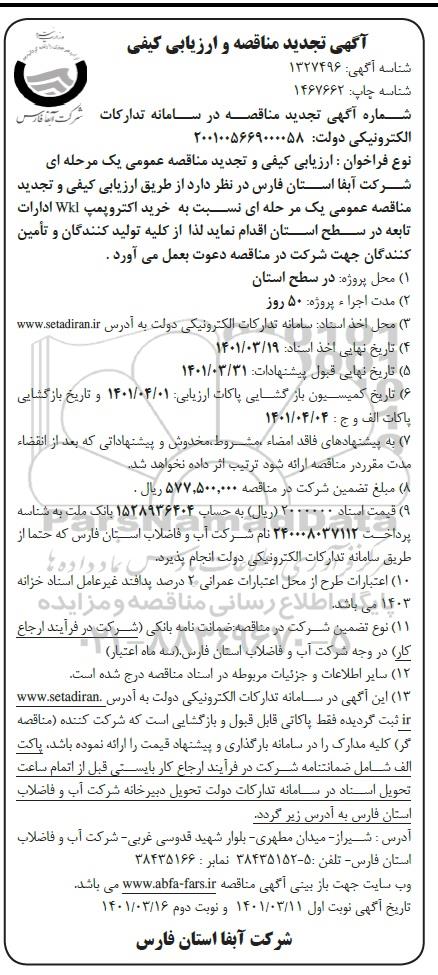 آگهی تجدید مناقصه و ارزیابی کیفی
شناسه آگهی: ۱۳۲۷۴۹۶
شناسه چاپ: ۱۴۶۷۶۶۲
شرکت آبفا فارس
شماره آگهی تجدید مناقصه در سامانه تدارکات
الکترونیکی دولت: ۲۰۰۱۰۰۵۶۶۹۰۰۰۰۵۸
نوع فراخوان : ارزیابی کیفی و تجدید مناقصه عمومی یک مرحله ای
شرکت آبفا استان فارس در نظر دارد از طریق ارزیابی کیفی و تجدید
مناقصه عمومی یک مر حله ای نسبت به خرید اکتروپمپ Wkl ادارات
تابعه در سطح استان اقدام نماید لذا از کلیه تولید کنندگان و تأمین
کنندگان جهت شرکت در مناقصه دعوت بعمل می آورد .
۱) محل پروژه: در سطح استان
۲) مدت اجرا ء پروژه: ۵۰ روز
۳) محل اخذ اسناد: سامانه تدارکات الکترونیکی دولت به آدرس www.setadiran.ir
۴) تاریخ نهایی اخذ اسناد: ۱۴۰۱/۰۳/۱۹
۵) تاریخ نهایی قبول پیشنهادات: ۱۴۰۱/۰۳/۳۱
۶) تاریخ کمیسیون باز گشایی پاکات ارزیابی: ۱۴۰۱/۰۴/۰۱ و تاریخ بازگشایی
پاکات الف و ج : ۱۴۰۱/۰۴/۰۴
۷) به پیشنهادهای فاقد امضاء ،مشروط،مخدوش و پیشنهاداتی که بعد از انقضاء
مدت مقرردر مناقصه ارائه شود ترتیب اثر داده نخواهد شد.
۸) مبلغ تضمین شرکت در مناقصه ۵۷۷,۵۰۰,۰۰۰ ریال .
۹) قیمت اسناد ۲۰۰۰۰۰۰ (ریال) به حساب ۱۵۲۸۹۳۶۴۰۴ بانک ملت به شناسه
پرداخت ۲۴۰۰۰۸۰۳۷۱۱۲ نام شرکت آب و فاضلاب استان فارس که حتما از
طریق سامانه تدارکات الکترونیکی دولت انجام پذیرد.
۱۰) اعتبارات طرح از محل اعتبارات عمرانی ۲ درصد پدافند غیرعامل اسناد خزانه
۱۴۰۳ می باشد.
۱۱) نوع تضمین شرکت در مناقصه:ضمانت نامه بانکی (شرکت در فرآیند ارجاع
کار) در وجه شرکت آب و فاضلاب استان فارس.(سه ماه اعتبار)
۱۲) سایر اطلاعات و جزئیات مربوطه در اسناد مناقصه درج شده است.
۱۳) این آگهی در سامانه تدارکات الکترونیکی دولت به آدرس www.setadiran.
ir ثبت گردیده فقط پاکاتی قابل قبول و بازگشایی است که شرکت کننده (مناقصه
گر) کلیه مدارک را در سامانه بارگذاری و پیشنهاد قیمت را ارائه نموده باشد، پاکت
الف شامل ضمانتنامه شرکت در فرآیند ارجاع کار بایستی قبل از اتمام ساعت
تحویل اسناد در سامانه تدارکات دولت تحویل دبیرخانه شرکت آب و فاضلاب
استان فارس به آدرس زیر گردد.
آدرس : شیراز- میدان مطهری- بلوار شهید قدوسی غربی- شرکت آب و فاضلاب
استان فارس- تلفن :۵-۳۸۴۳۵۱۵۲ نمابر : ۳۸۴۳۵۱۶۶
وب سایت جهت باز بینی آگهی مناقصه www.abfa-fars.ir می باشد.
تاریخ آگهی نوبت اول ۱۴۰۱/۰۳/۱۱ و نوبت دوم ۱۴۰۱/۰۳/۱۶
شرکت آبفا استان فارس
ParsNamadData
پایگاه اطلاع رسانی مناقصه و مزایده
۰۲۱-۸۸۳۴۹۶۷۰-۵